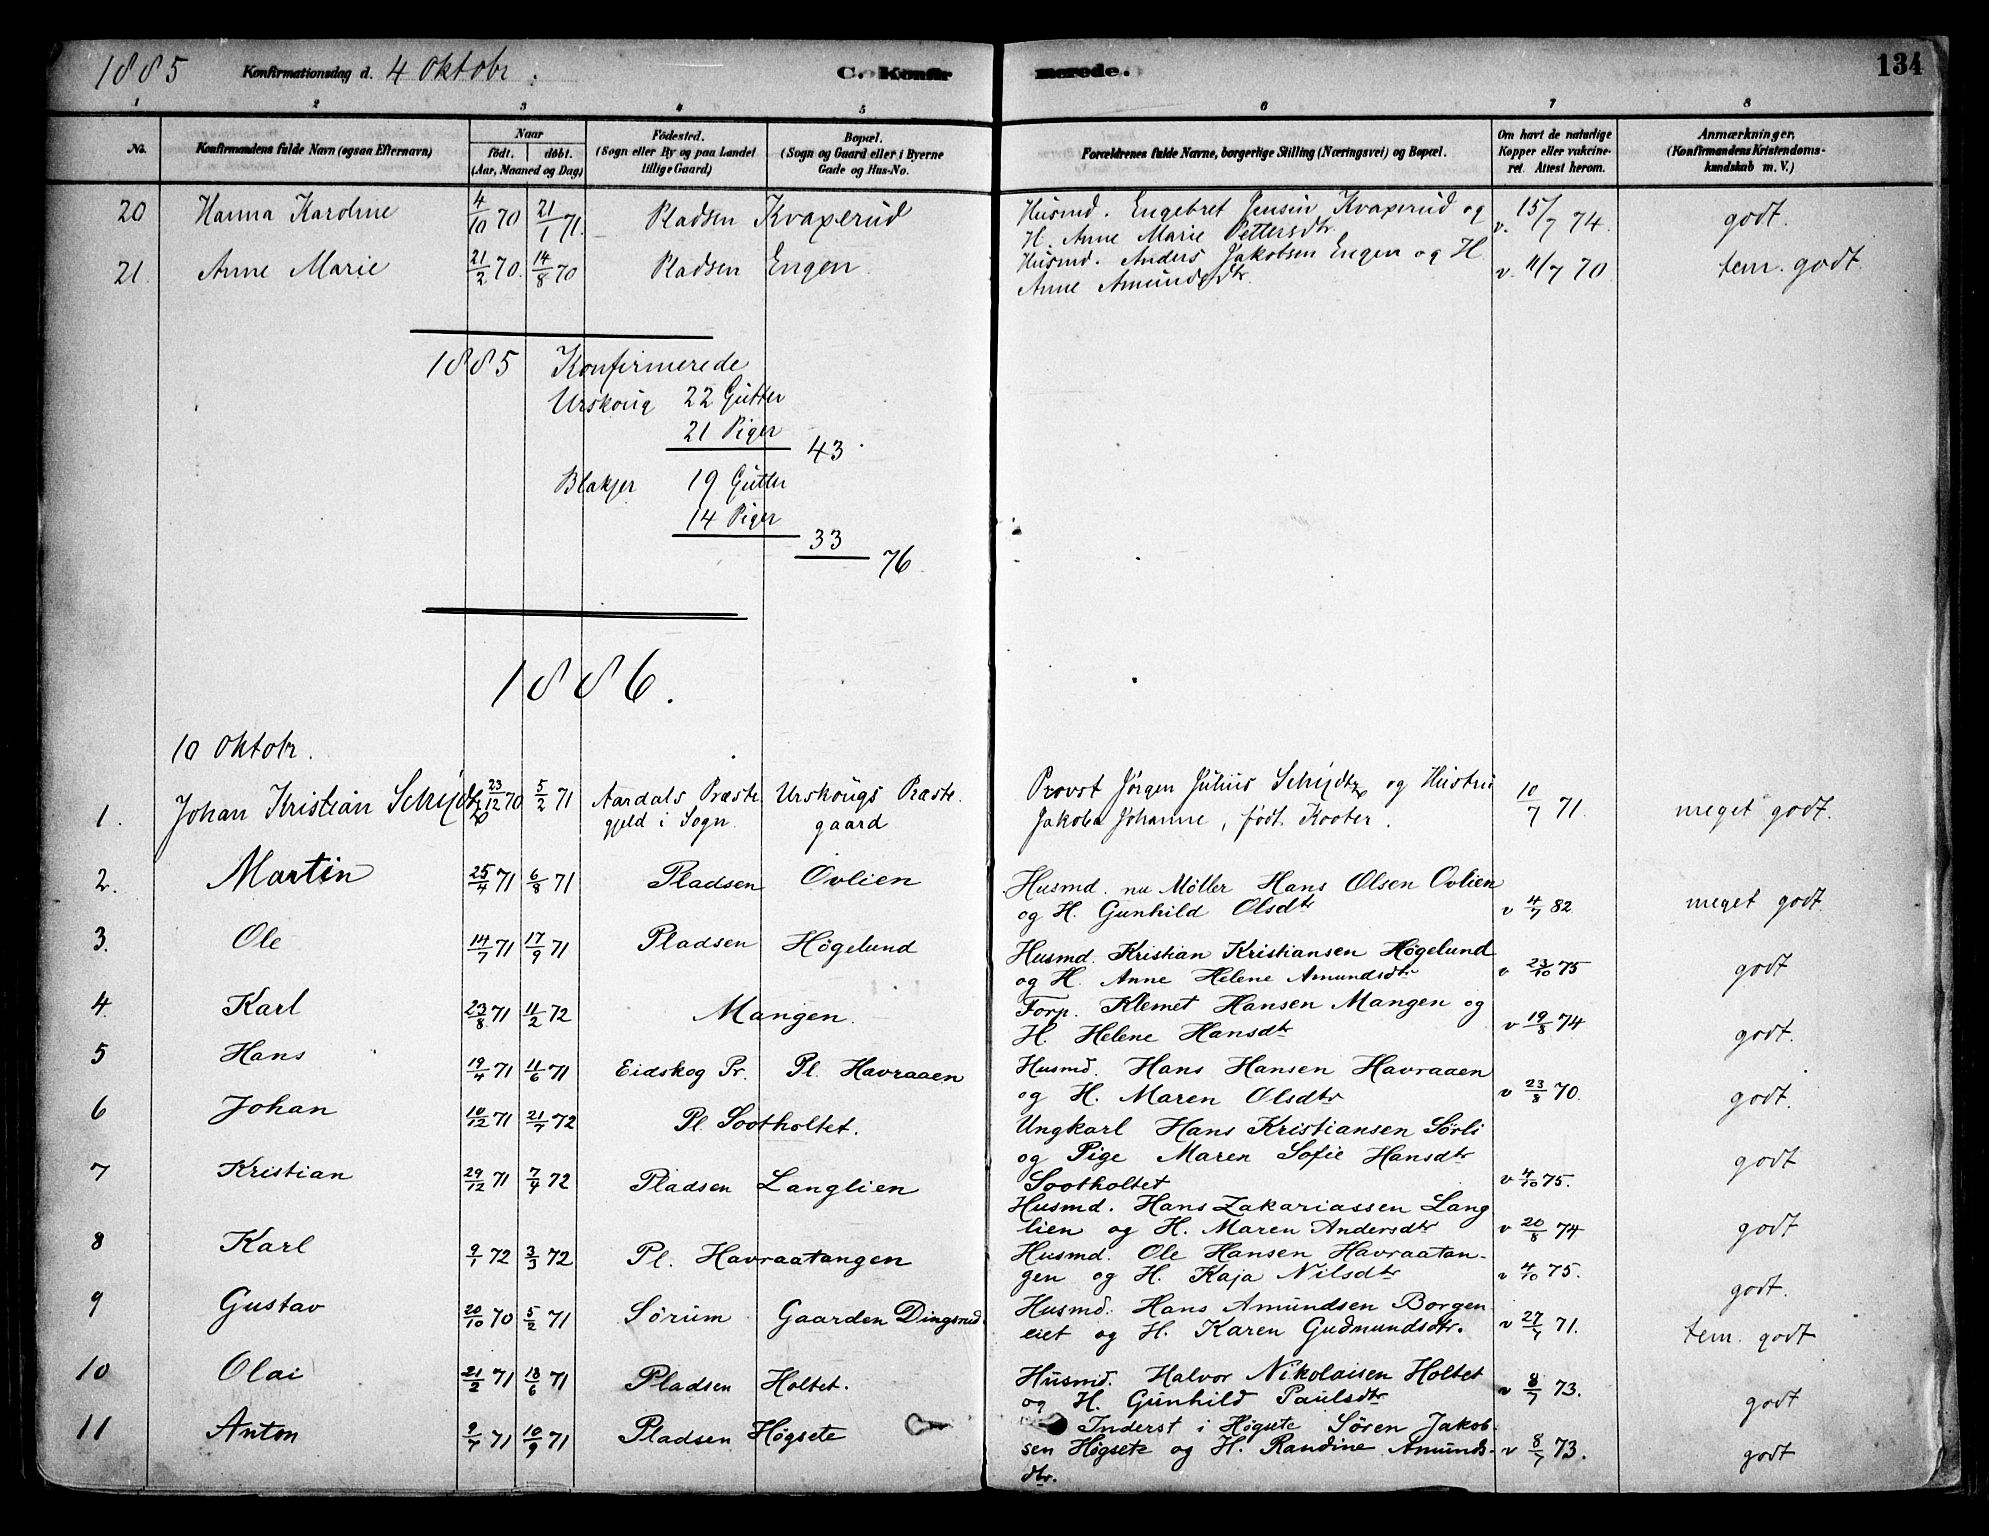 1885 Konfirmationsdag d. 4 Oktobr. C. Konfirmerede. 134
1 2 3 4 5 6 7 8
No. Konfirmandens fulde Navn (ogsaa Efternavn) Naar født. døbt. (Aar, Maaned og Dag) Fødested. (Sogn eller By og paa Landet tillige Gaard) Bopæl. (Sogn og Gaard eller i Byerne Gade og Hus-No. Forældrenes fulde Navne, borgerlige Stilling (Næringsvei) og Bopæl. Om havt de naturlige Kopper eller vakcineret. Attest herom. Anmærkninger. (Konfirmandens Kristendomskundskab m. V.)
20 Hanna Karoline 4/10 70 21/1 71. Pladsen Kvaxerud Husmd. Engebret Jensen Kvaxerud og v. 15/7 74. godt.
H. Anne Marie Pettersdtr.
21. Anne Marie 21/2 70. 14/8 70 Pladsen Engen. Husmd. Anders Jakobsen Engen og H v. 11/7 70 tem. godt.
Anne Amundsdtr.
1885 Konfirmerede
Urskoug 22 Gutter
21 Piger
43.
Blakjer 19 Gutter
14 Piger
33
76
1886.
10 Oktobr.
1. Johan Kristian Schydtz 23/12 70 5/2 71 Aardals Præste Urskougs Præste. Provst Jörgen Julius Schydtz og Hustru 10/7 71. meget godt.
gjeld i Sogn. gaard Jakoba Johanne, født Kooter.
2. Martin 25/4 71 6/8 71 Pladsen Ovlien Husmd. nu Møller Hans Olsen Ovlien
og H. Gunhild Olsdtr v 4/7 82 meget godt.
3. Ole 14/7 71 17/9 71 Pladsen Høgelund Husmd. Kristian Kristiansen Høgelund
og H. Anne Helene Amundsdtr v 23/10 75 godt
4. Karl 23/8 71 11/2 72 Mangen. Forp. Klemet Hansen Mangen og
H. Helene Hansdtr v 19/8 74 godt.
5 Hans 19/4 71 11/6 71 Eidskog Pr. Pl. Havraaen Husmd. Hans Hansen Havraaen
og H. Maren Olsdtr v 23/8 70. godt.
6 Johan 10/12 71 21/7 72 Pl. Sootholtet. Ungkarl Hans Kristiansen Sørli
og Pige Maren Sofie Hansdtr godt
Sootholtet v 4/10 75.
7 Kristian 29/12 71 7/4 72 Pladsen Langlien Husmd. Hans Zakariassen Lang
lien og H. Maren Andersdtr v 20/8 74 godt
8 Karl 9/1 72 3/3 72 Pl. Havraatangen Husmd. Ole Hansen Havraatan-
gen og H. Kaja Nilsdtr v 4/10 75. godt.
9 Gustav 20/10 70 5/2 71 Sørum Gaarden Dingsrud. Husmd. Hans Amundsen Borgen
eiet og H. Karen Gudmundsdtr. v 27/7 71. tem. godt
10 Olai 21/2 71 18/6 71 Pladsen Holtet. Husmd. Halvor Nikolaisen Holtet
og H. Gunhild Paulsdtr v 8/7 73. godt
11 Anton 9/7 71 10/9 71 Pladsen Høgsete Inderst i Høgsete Søren Jakob-
sen Høgsete og H. Randine Amunds- v 8/7 73. godt
dtr.